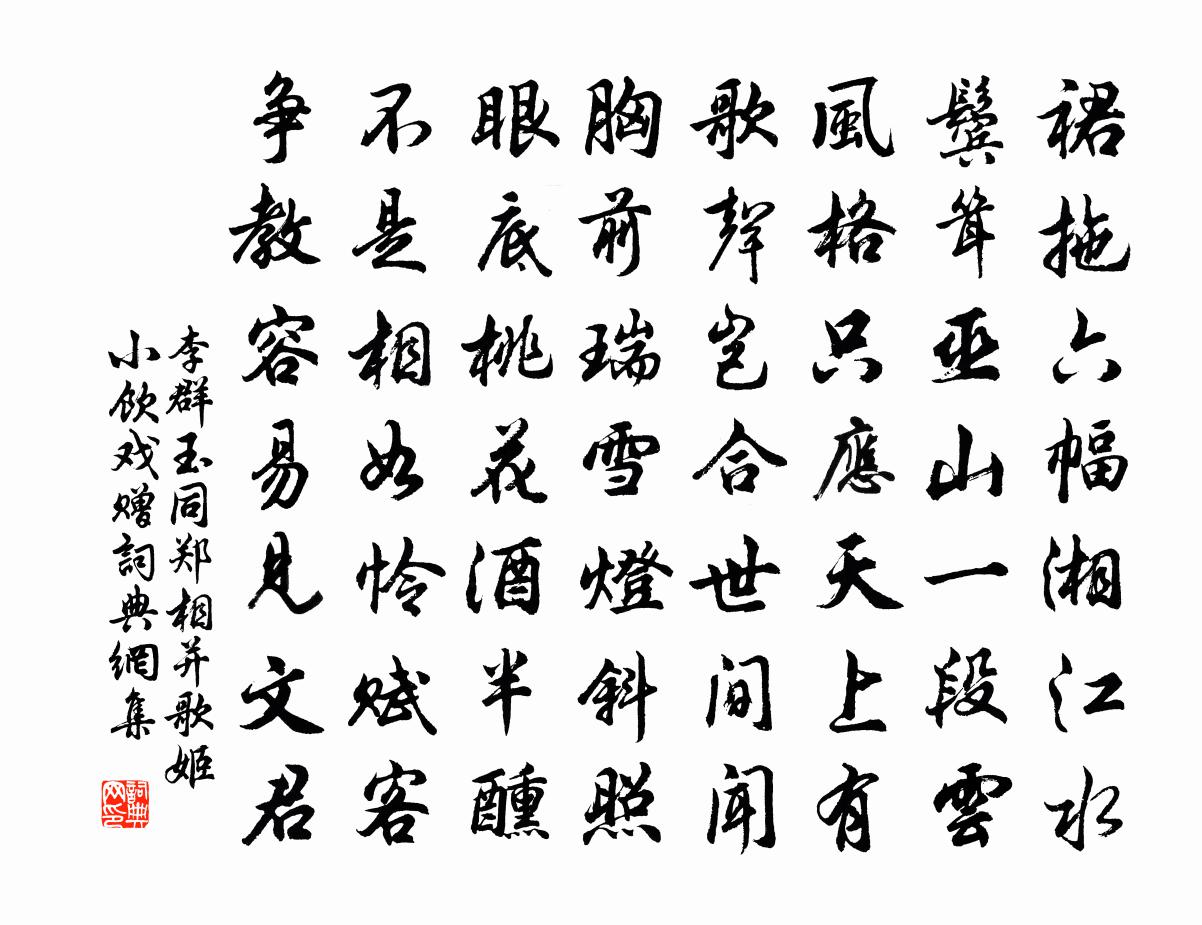 裙拖六幅湘江水
鬓耸巫山一段雲
風格只應天上有
歌聲豈合世间闻
胸前瑞雪燈斜照
眼底桃花酒半醺
不是相如怜赋客
争教容易見文君
李群玉同郑相并歌姬
小飲戏赠詞典網集
詞典
网印